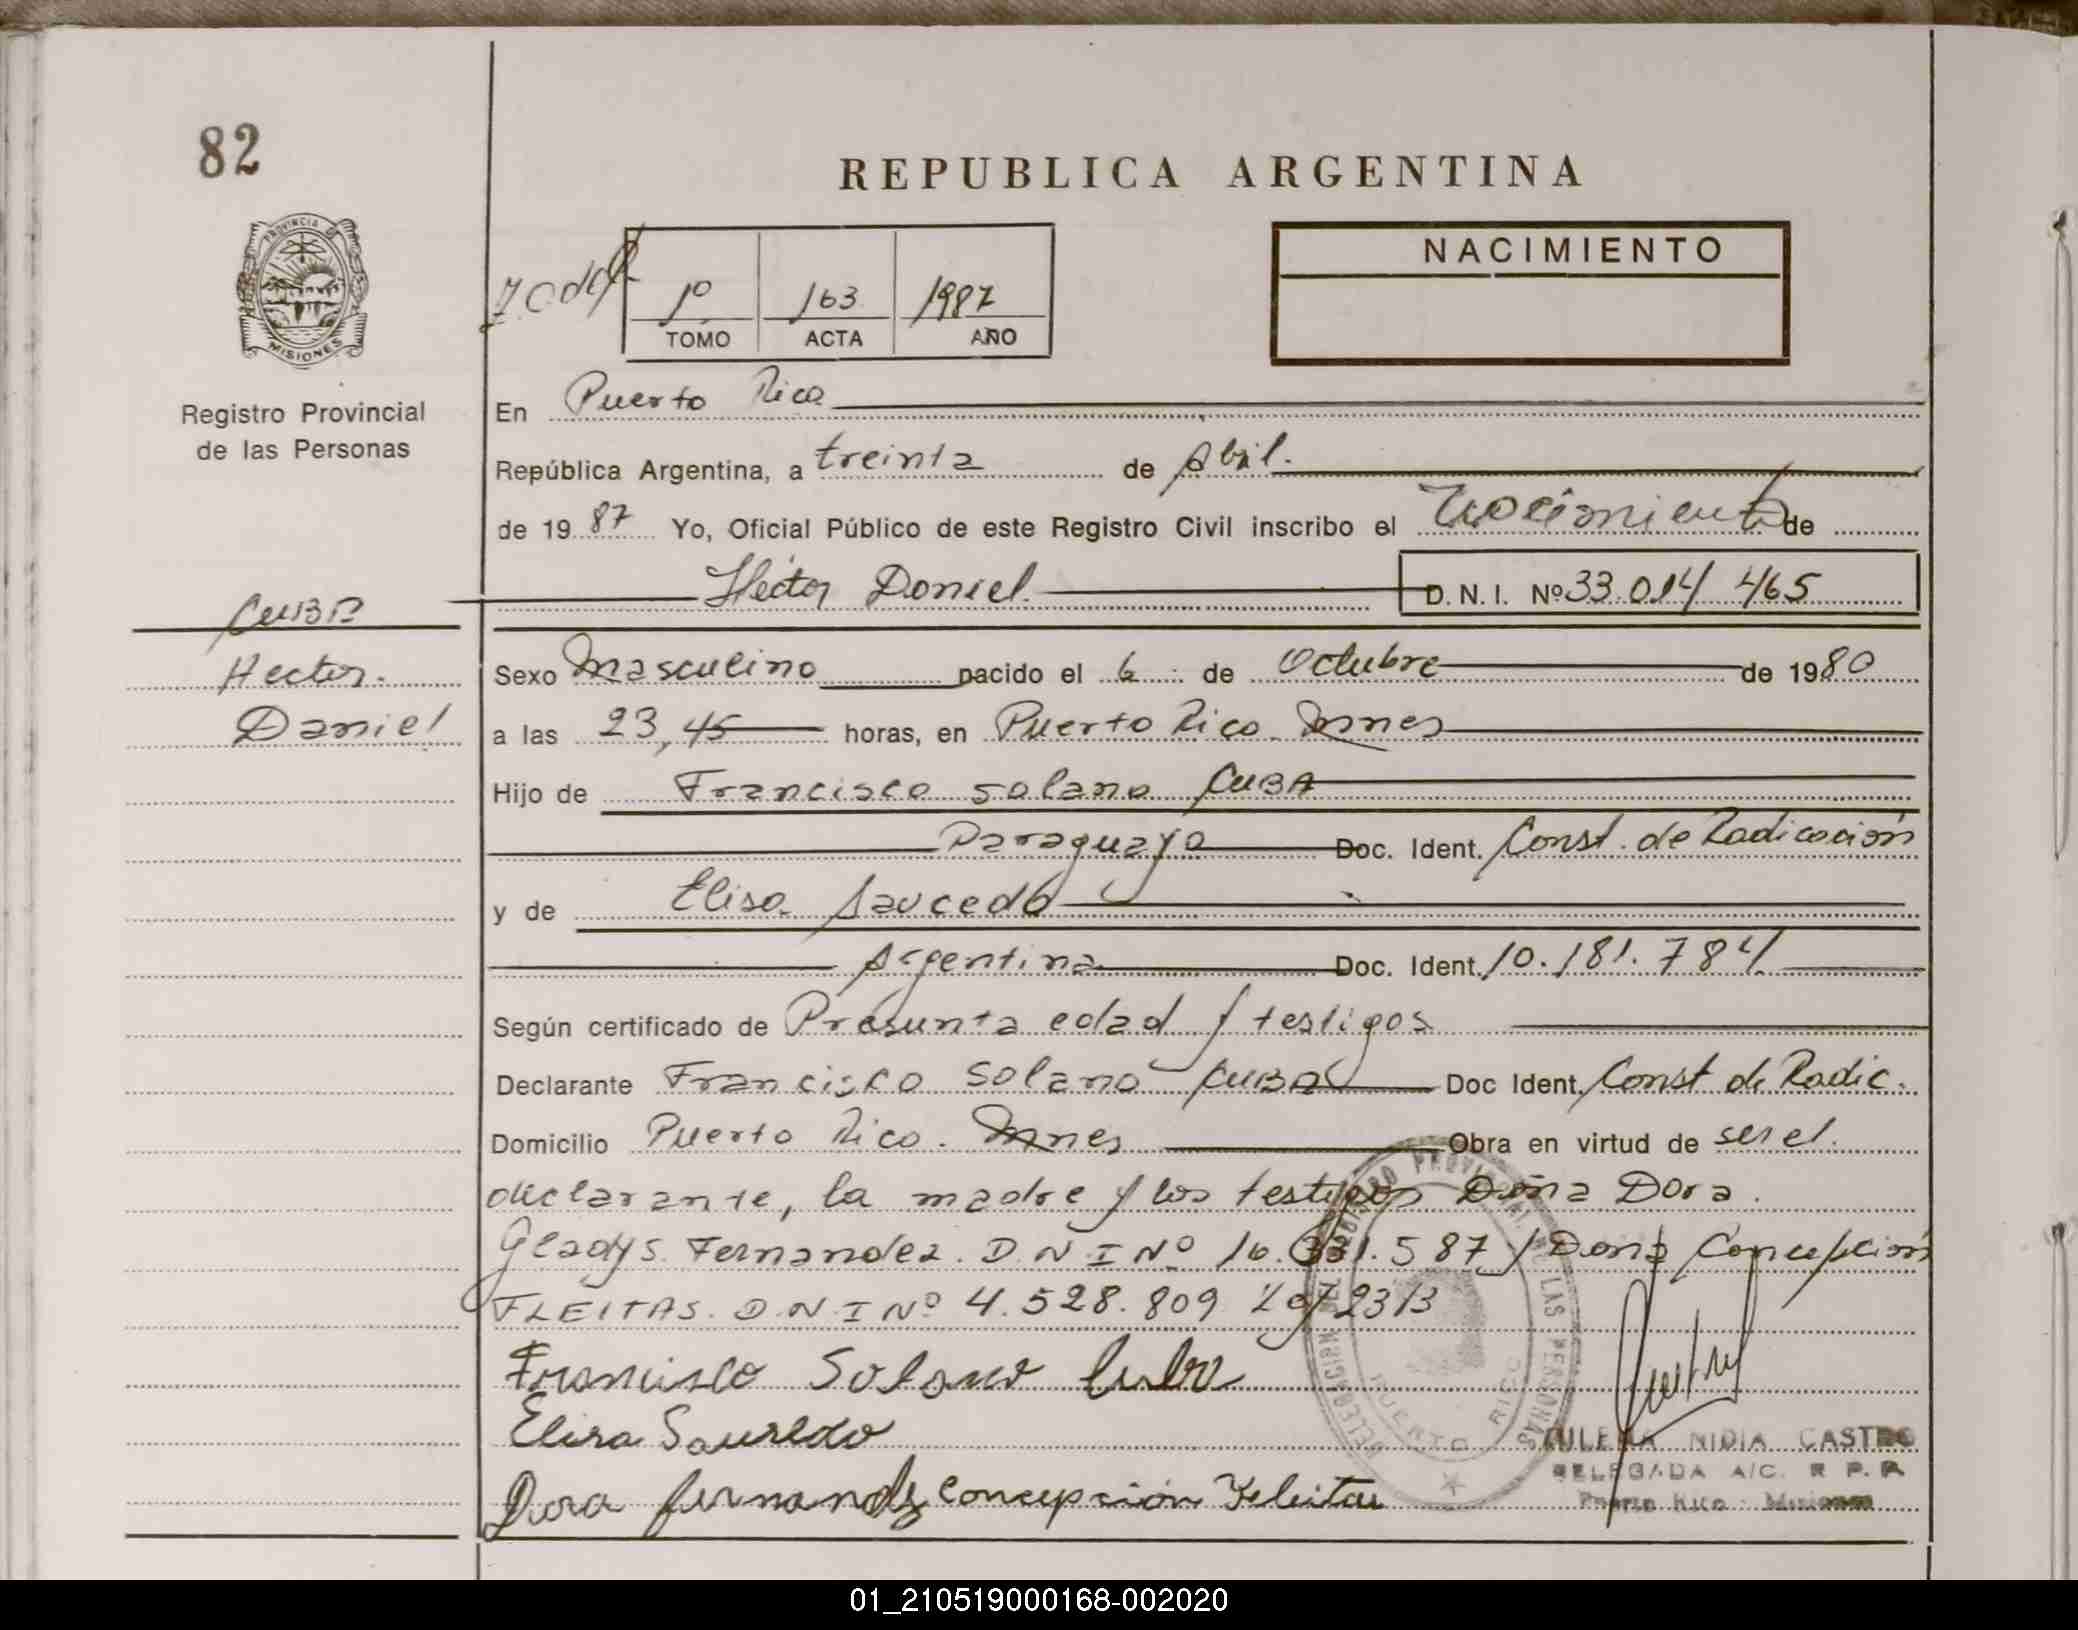 82
REPUBLICA ARGENTINA
PROVINCIA DE
MISIONES
Registro Provincial
de las Personas
1º 163 1987
TOMO ACTA AÑO
NACIMIENTO
En Puerto Rico
República Argentina, a treinta de Abril.
de 1987 Yo, Oficial Público de este Registro Civil inscribo el Nacimiento de
Héctor Daniel D. N. I. Nº 33.014 465
CUBA
Hector.
Daniel
Sexo Masculino nacido el 6 de Octubre de 1980
a las 23,45 horas, en Puerto Rico. Mnes
Hijo de Francisco Solano CUBA
Paraguaya Doc. Ident. Const. de Radicación
y de Elisa Saucedo
Argentina Doc. Ident. 10.181.784
Según certificado de Presunta edad y testigos
Declarante Francisco Solano CUBA Doc Ident. Const de Radic.
Domicilio Puerto Rico. Mnes Obra en virtud de ser el
declarante, la madre y los testigos Doña Dora
Gladys Fernandez. D.N I Nº 16.331.587 y Doña Concepción
FLEITAS. D.N I Nº 4.528.809
Francisco Solano Cuba
Elisa Saucedo
Dora fernandez concepcion Fleitas
DELEGACION DEL REGISTRO PROVINCIAL DE LAS PERSONAS
PUERTO RICO
NIDIA CASTRO
DELEGADA A/C. R P. P.
Puerto Rico - Misiones
01_210519000168-002020